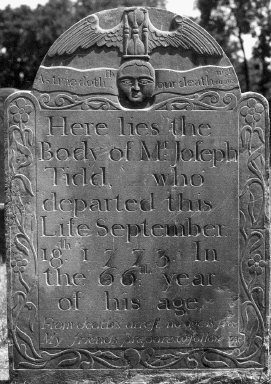 As time doth fly our death
Here lies the
Body of Mr. Joseph
Tidd, who
departed this
Life September
18th 1773. In
the 66th year
of his age
From death's arrest no age is free
My friends prepare to follow me